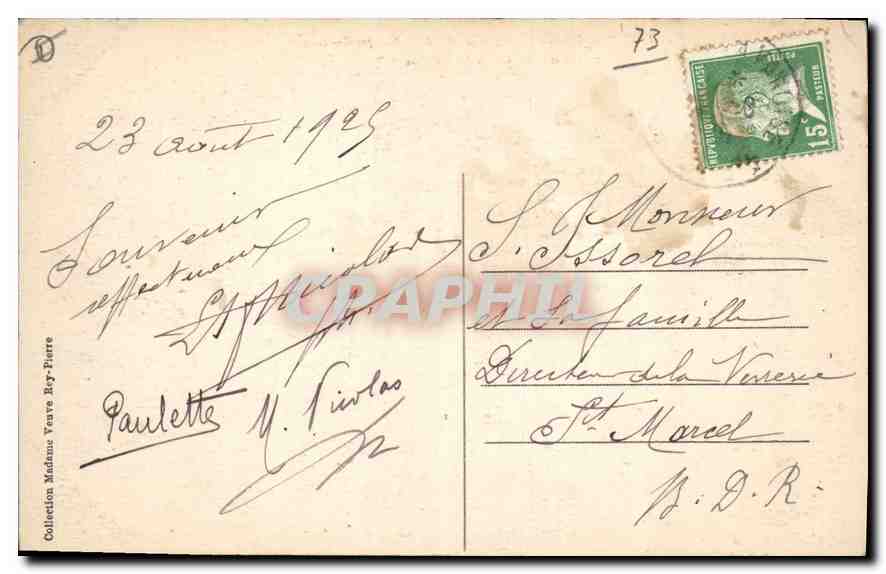 73
REPUBLIQUE FRANÇAISE
POSTES
PASTEUR
15c
23 août 1925
Souvenir
affectueux
Nicolas
Paulette
M. Nicolas
Monsieur
S. Issorel
et Sa famille
Directeur de la Verrerie
St Marcel
B. D. R.
Collection Madame Veuve Rey-Pierre
CPAPHIL